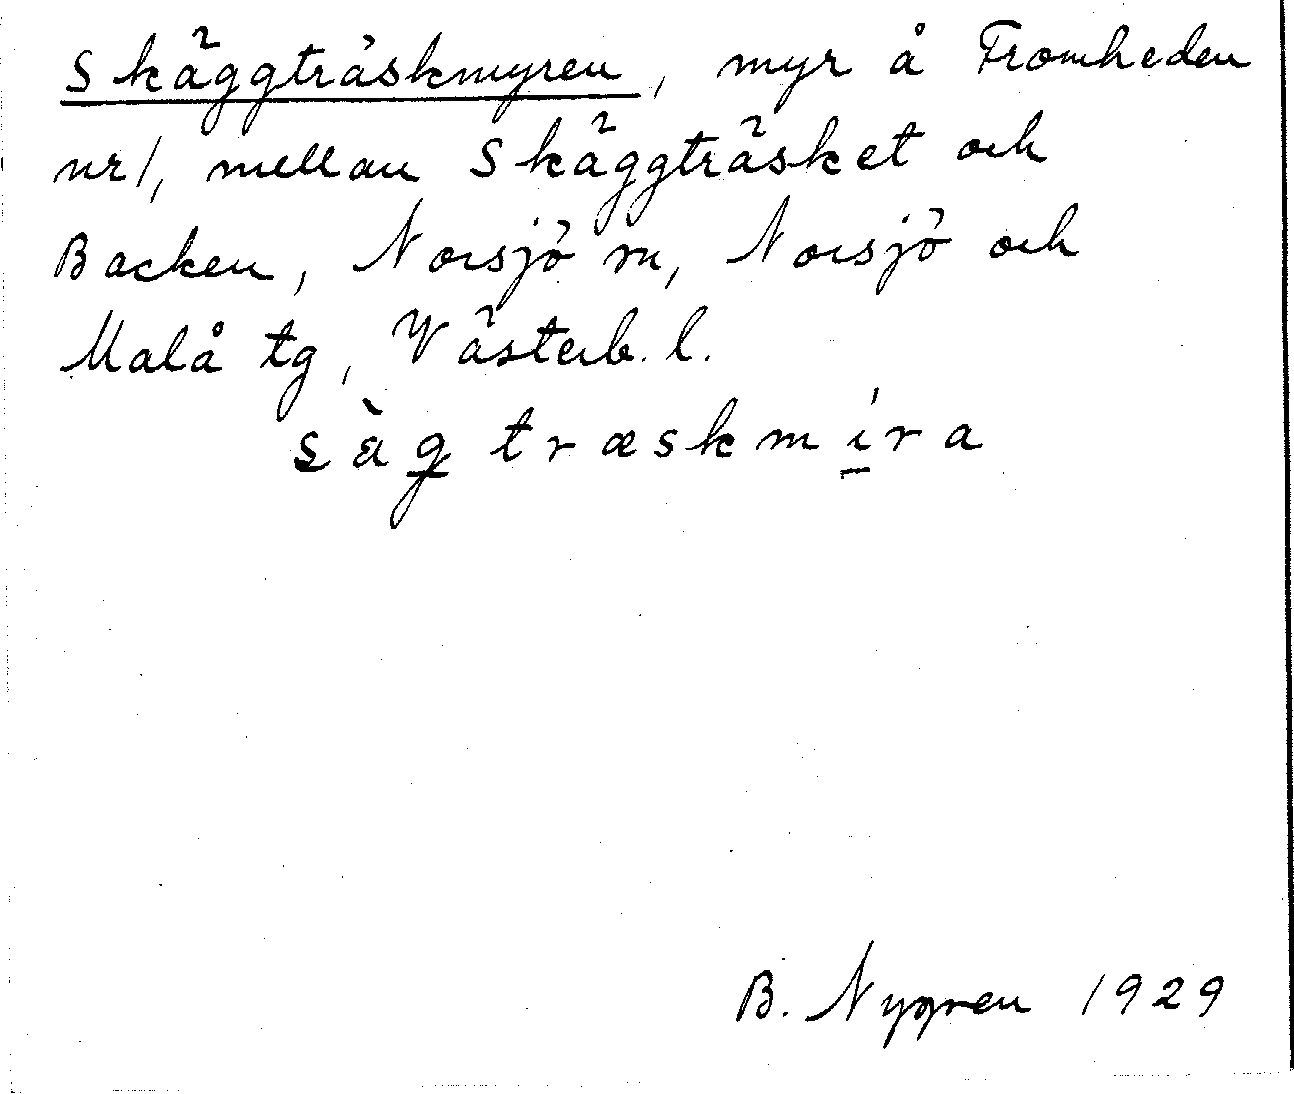 Skäggträskmyren, myr å Fromheden
nr 1, mellan Skäggträsket och
Backen, Norsjö sn, Norsjö och
Malå tg, Västerb. l.
sàg træskmíra
B. Nygren 1929